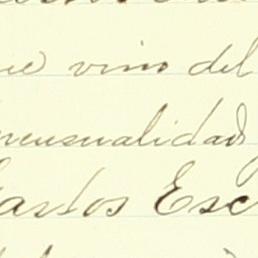 ue vino del
mensualidad
Carlos Esc